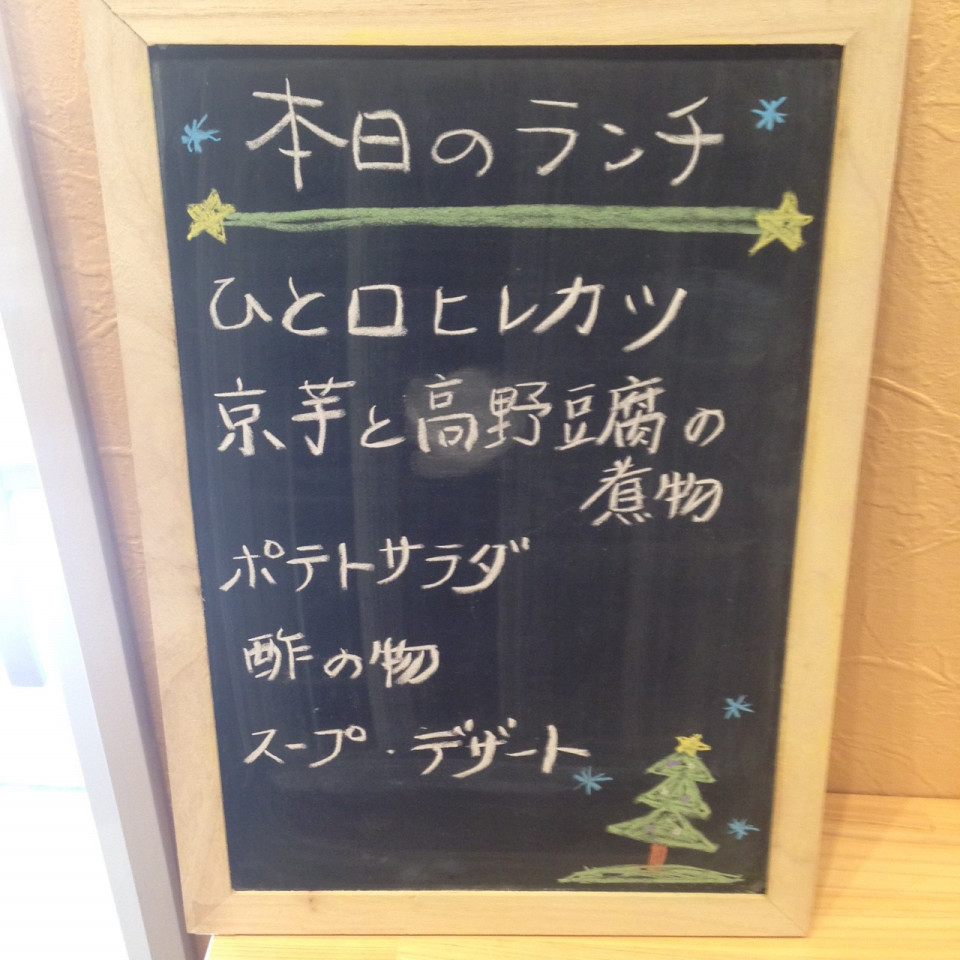 本日のランチ
ひと口ヒレカツ
京芋と高野豆腐の
煮物
ポテトサラダ
酢の物
スープ・デザート